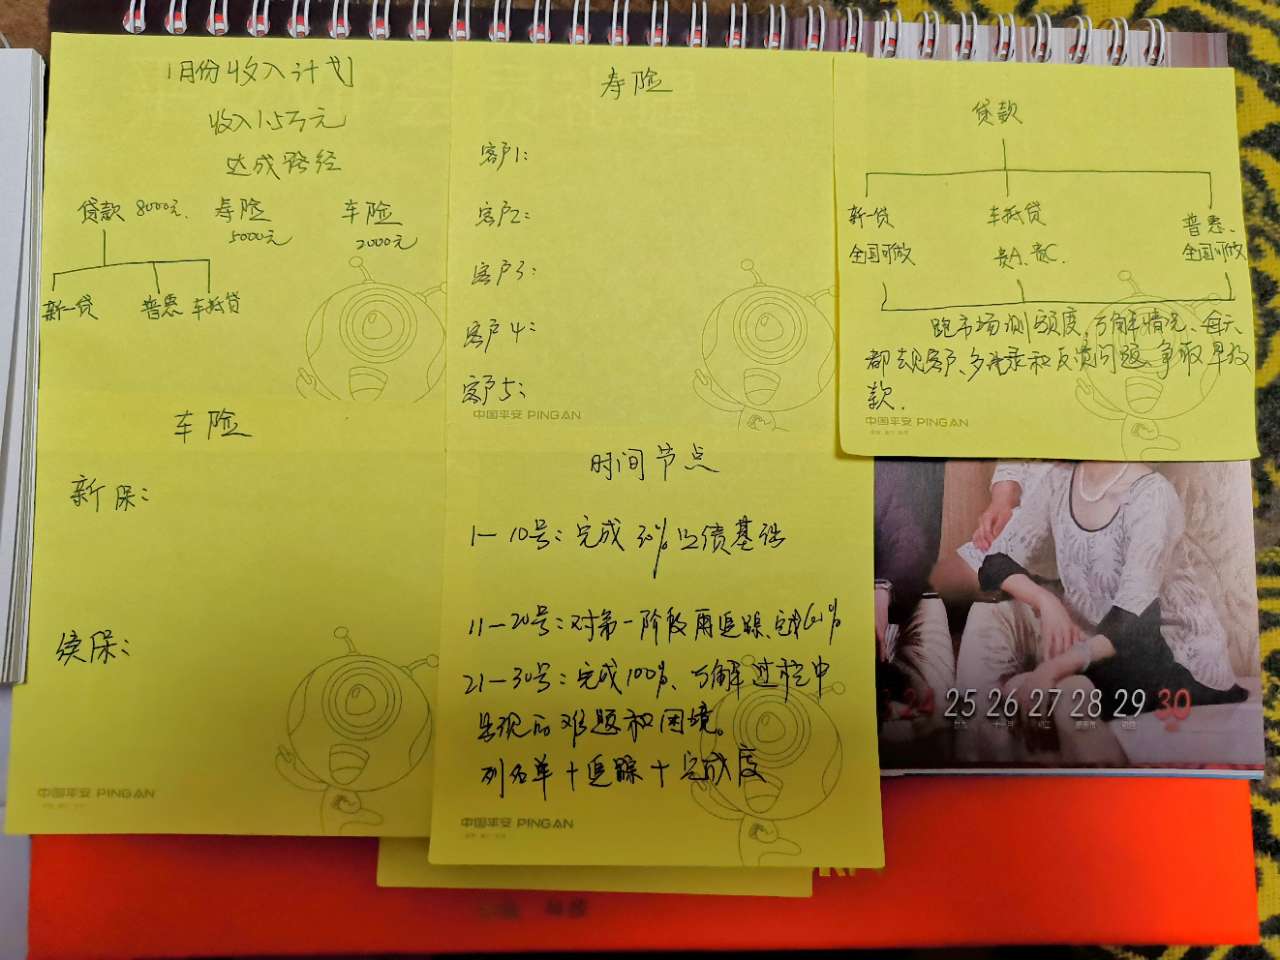 1月份收入计划
收入1.5万元
达成路径
贷款 8000元. 寿险 5000元 车险 2000元
新一贷 普惠 车抵贷
寿险
客户1:
客户2:
客户3:
客户4:
客户5:
中国平安 PINGAN
贷款
新一贷 车抵贷 普惠、
全国可做 贵A、贵C. 全国可做
跑市场测额度,了解情况、每天
都去见客户、多记录和反馈问题、争取早放
款.
中国平安 PINGAN
车险
新保:
续保:
中国平安 PINGAN
时间节点
1—10号:完成30%业绩基础
11—20号:对第一阶段再追踪、完成60%
21—30号:完成100%、了解过程中
呈现的难题和困境。
列名单+追踪+完成度
中国平安 PINGAN
24 25 26 27 28 29 30